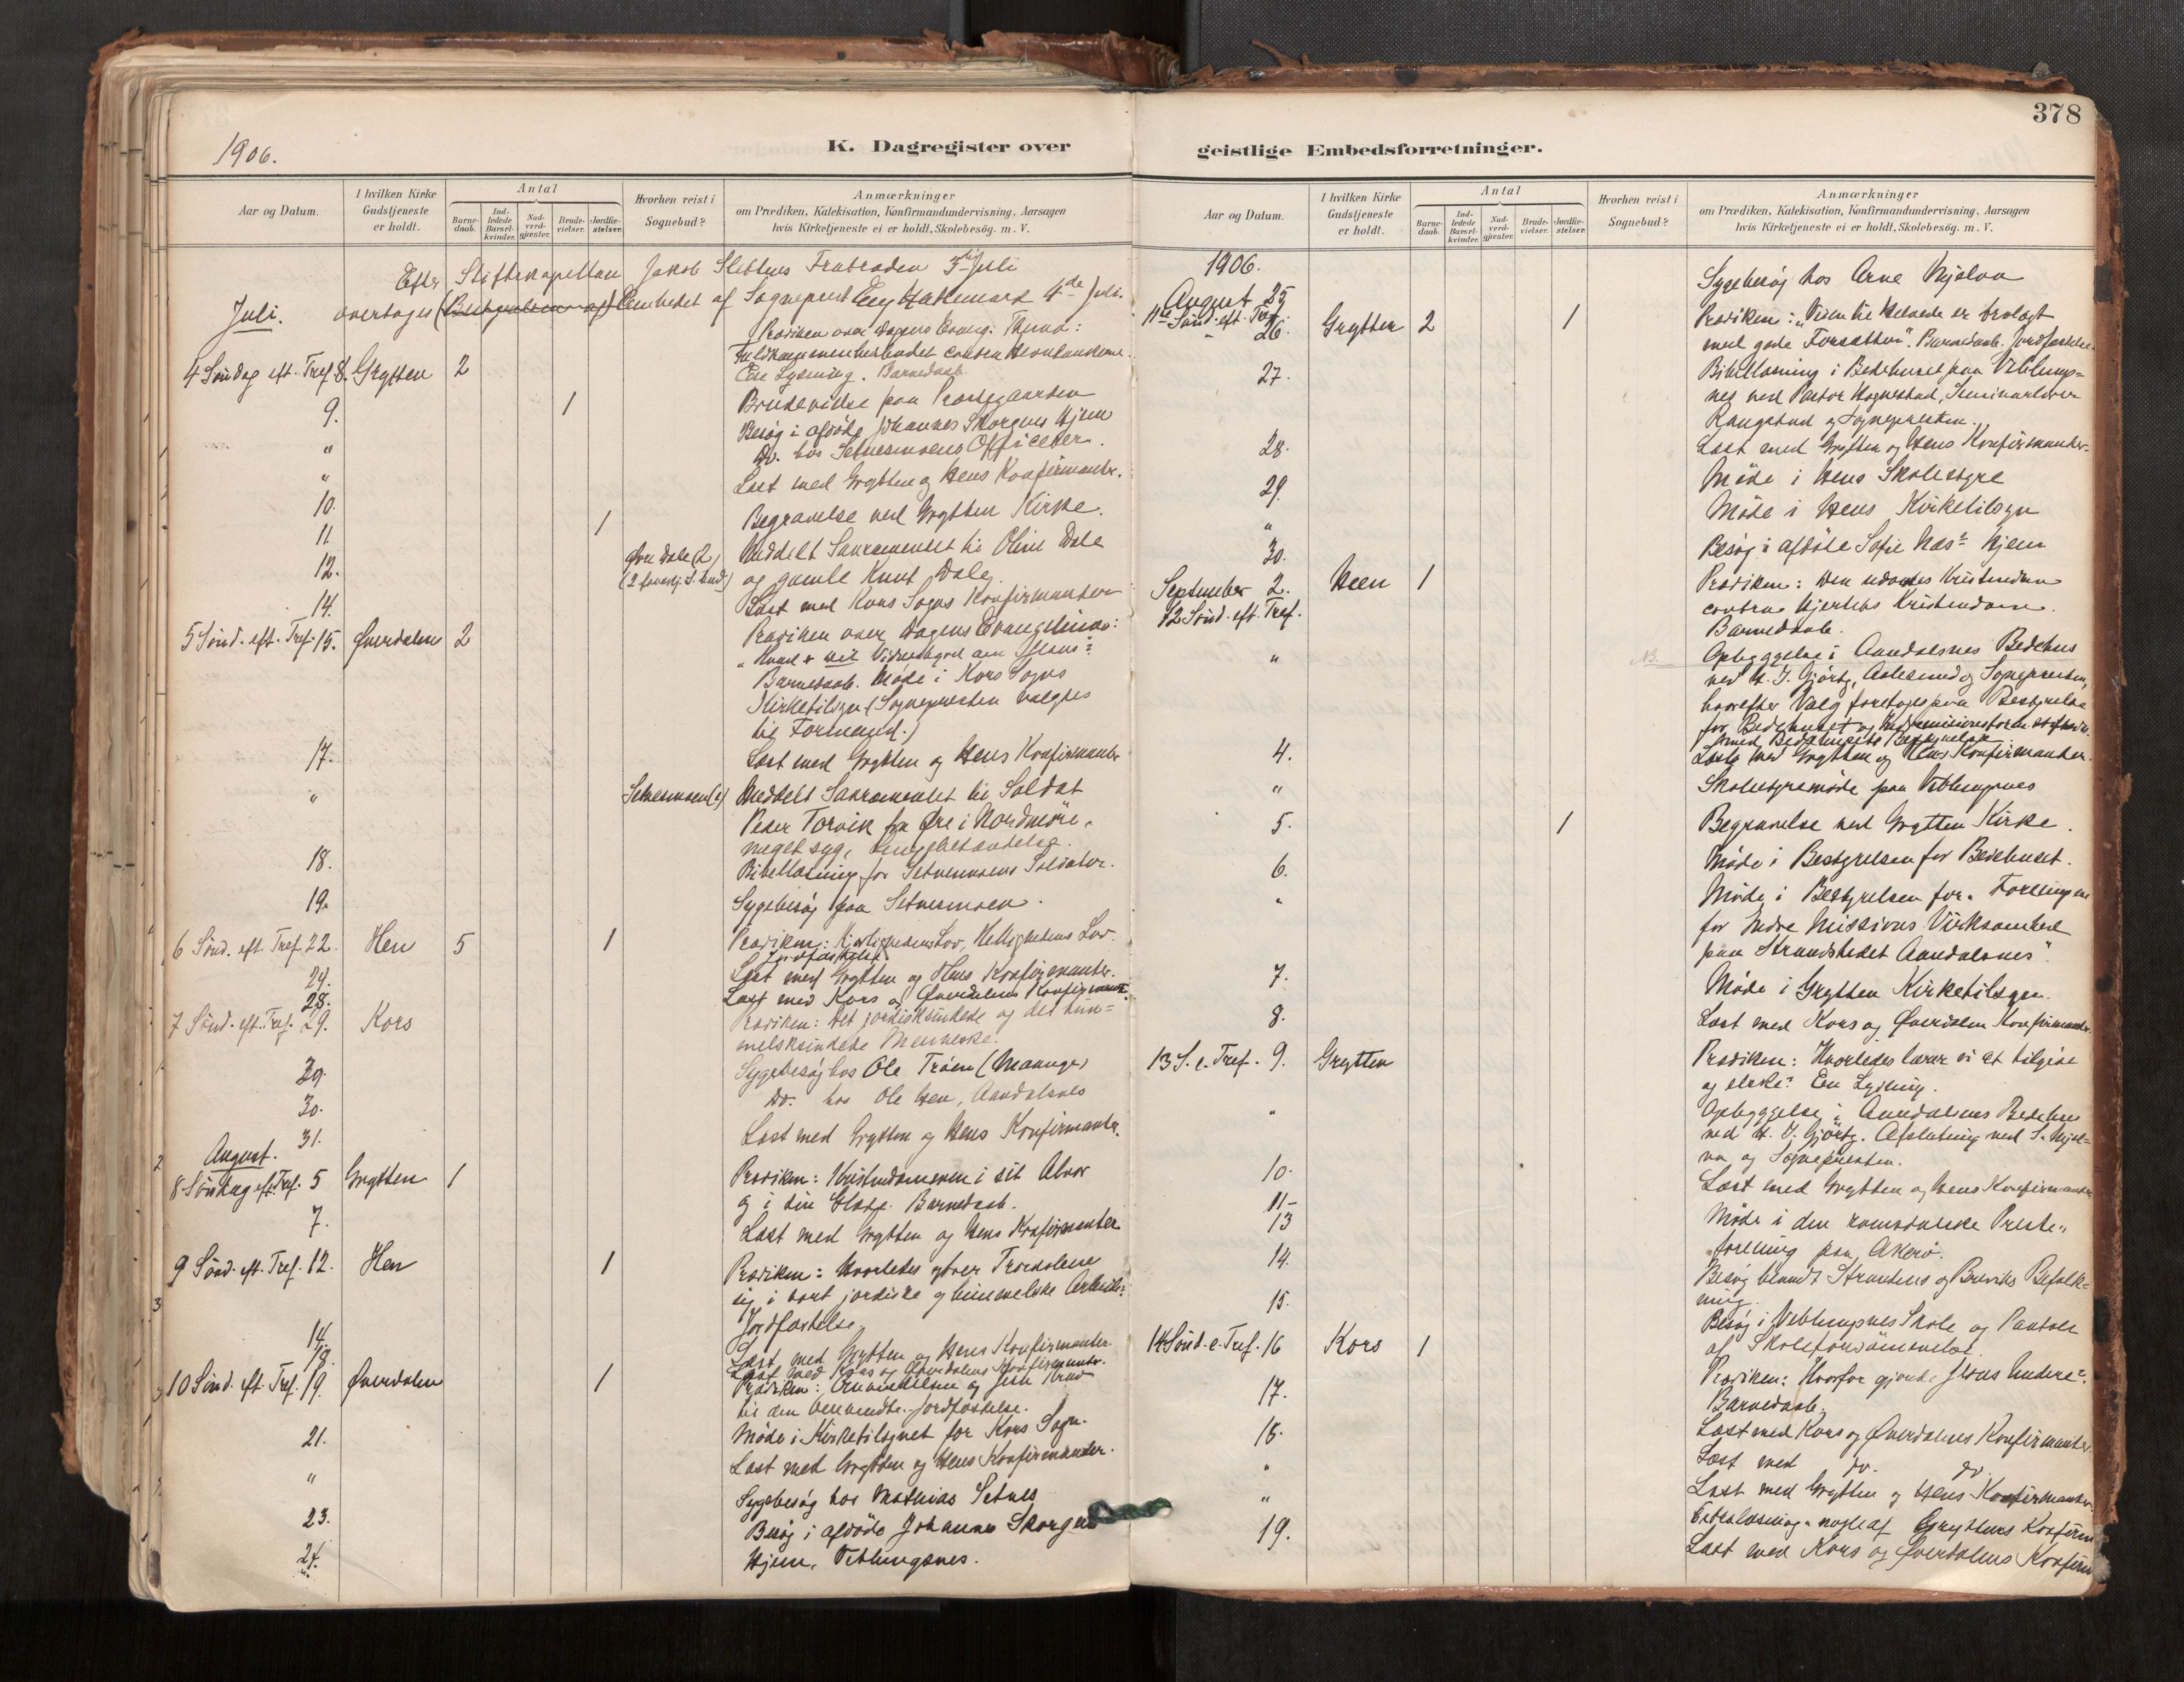 378
1906.
K. Dagregister over
geistlige Embedsforretninger.
Aar og Datum.
I hvilken Kirke Gudstjeneste er holdt.
Antal
Barnedaab.
Indledede Barselkvinder.
Nadverdgjester.
Brudevielser.
Jordfæstelser.
Hvorhen reist i Sognebud?
Anmærkninger
om Prædiken, Katekisation, Konfirmandundervisning, Aarsagen
hvis Kirketjeneste ei er holdt, Skolebesög. m. V.
Efter Stiftskapellan Jakob Slettens Fratræden 3die Juli
Juli. overtages (Bestyrelsen af) Embedet af Sogneprest 4de Juli.
Prædiken over Dagens Evang. Thema:
4 Søndag eft. Tref. 8. Grytten 2
En Lysning. Barnedaab.
9. 1 Brudevielse paa Præstegaarden
" Besøg i afdøde Johannes Skorgens Hjem
" Do. hos Setnesmoens Officerer.
10. Læst med Grytten og Hens Konfirmanter.
11 1 Begravelse ved Grytten Kirke.
12. Øvre Dale (2) Meddelt Sakramentet til Oline Dale
(2 forskj. S. bud) og gamle Knut Dale.
14. Læst med Kors Sogns Konfirmanter
5 Sönd. eft. Tref. 15. Øverdalen 2 Prædiken over Dagens Evangelium:
Barnedaab. Møde i Kors Sogns
Kirketilsyn (Sognepresten valgtes
til Formand.)
17. Læst med Grytten og Hens Konfirmanter
" Setnesmoen (1) Meddelt Sakramentet til Soldat
Peder Torvik fra Øre i Nordmöre,
meget syg, Lungebetændelse.
18. Bibellæsning for Setnesmoens Soldater.
19. Sygebesøg paa Setnesmoen.
6 Sönd. eft. Tref. 22. Hen 5 1 Prædiken: Kjærlighedens Lov, Hellighedens Lov.
Jordfæstelse
Læst med Grytten og Hens Konfirmanter.
28. Læst med Kors og Øverdalens Konfirmant.
7 Sönd. eft. Tref. 29. Kors Prædiken: Det jordisksindede og det him=
melsksindede Menneske.
Sygebesøg hos Ole Tröen
30. Do. hos Ole Hen, Aandalsnes
31. Læst med Grytten og Hens Konfirmanter.
August.
8 Söndag eft. Tref. 5 Grytten 1 Prædiken: Kristendommen i sit Alvor
og i sin Glæde. Barnedaab.
7. Læst med Grytten og Hens Konfirmanter
9 Sönd. eft. Tref. 12. Hen 1 Prædiken: Hvorledes ytrer Troskaben
sig i vort jordiske og himmelske Arbeide?
Jordfæstelse.
14. Læst med Grytten og Hens Konfirmanter.
18. Læst med Kors og Øverdalens Konfirmanter.
10 Sönd. eft. Tref. 19. Øverdalen 1 Prædiken: Omvendelsen og Jesu Krav
til den Omvendte. Jordfæstelse.
Møde i Kirketilsynet for Kors Sogn.
21. Læst med Grytten og Hens Konfirmanter.
" Sygebesøg hos Mathias Setnes
23. Besøg i afdöde Johannes Skorgens
24. Hjem, Veblungsnes.
Aar og Datum.
I hvilken Kirke Gudstjeneste er holdt.
Antal
Barnedaab.
Indledede Barselkvinder.
Nadverdgjester.
Brudevielser.
Jordfæstelser.
Hvorhen reist i Sognebud?
Anmærkninger
om Prædiken, Katekisation, Konfirmandundervisning, Aarsagen
hvis Kirketjeneste ei er holdt, Skolebesög. m. V.
1906.
August 25 Sygebesøg hos Arne Mjelva
11te Sönd. eft. Tref.
" 26. Grytten 2 1 Prædiken: "Veien til Helvede er brolagt
med gode Forsætter". Barnedaab. Jordfæstelse.
27. Bibellæsning i Bedehuset paa Veblungs=
nes ved Pastor Hognestad, Seminarlærer
Rangstad og Sognepresten.
28. Læst med Grytten og Hens Konfirmanter.
29. Møde i Hens Skolestyre
" Møde i Hens Kirketilsyn
30. Besøg i afdöde Sofie Næs' Hjem
September 2. Heen 1 Prædiken: Den udvortes Kristendom
12 Sönd. eft. Tref. contra Hjertets Kristendom.
Barnedaab.
" NB. Opbyggelse i Aandalsnes Bedehus
ved H. J. Gjörtz, Aalesund og Sognepresten,
hvorefter Valg foretoges paa Bestyrelse
for Bedehuset
Bedehusets Bestyrelse
4. Læst med Grytten og Hens Konfirmanter.
" Skolestyremøde paa Veblungsnes
5. 1 Begravelse ved Grytten Kirke.
6. Møde i Bestyrelsen for Bedehuset.
" Møde i Bestyrelsen for "Foreningen
for Indre Missions Virksomhed
paa Strandstedet Aandalsnes".
7. Møde i Grytten Kirketilsyn.
8. Læst med Kors og Øverdalen Konfirmanter.
13 S. e. Tref. 9. Grytten Prædiken: Hvorledes lærer vi at tilgive
og elske? En Lysning.
" Opbyggelse i Aandalsnes Bedehus
ved H. J. Gjörtz. Afslutning ved S. Mjel=
va og Sognepresten.
10. Læst med Grytten og Hens Konfirmanter
11-13 Møde i den romsdalske Preste=
forening paa Akerö.
14. Besøg blandt Strandens og Breviks Befolk=
ning.
15. Besøg i Veblungsnes Skole og Paatale
af Skoleforsömmelse.
14 Sönd. e. Tref. 16 Kors 1 Prædiken: Hvorfor gjorde Jesus Undere?
Barnedaab.
17. Læst med Kors og Øverdalens Konfirmanter.
18. Læst med do. do.
" Læst med Grytten og Hens Konfirmanter.
" Extralæsning nogle af Gryttens Konfirm
19. Læst med Kors og Øverdalens Konfirm